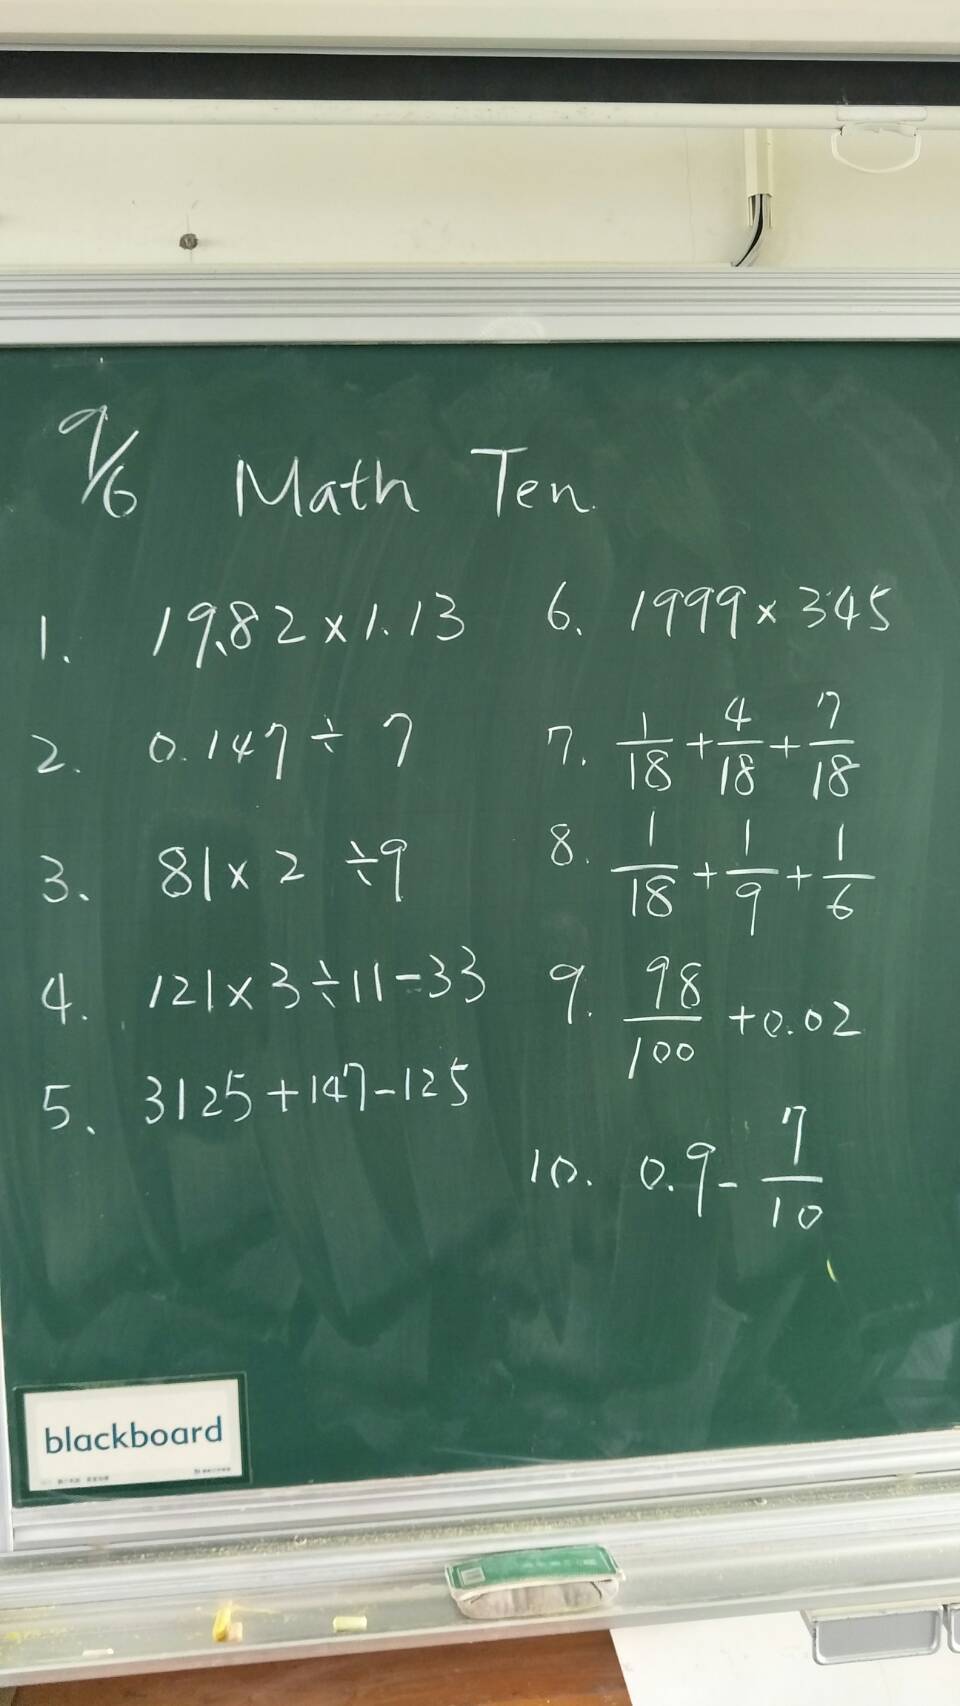 9/6 Math Ten.
1. 19.82 × 1.13
2. 0.147 ÷ 7
3. 81 × 2 ÷ 9
4. 121 × 3 ÷ 11 - 33
5. 3125 + 147 - 125
6. 1999 × 345
7. 1/18 + 4/18 + 7/18
8. 1/18 + 1/9 + 1/6
9. 98/100 + 0.02
10. 0.9 - 7/10
blackboard